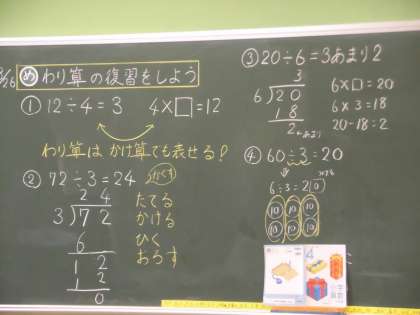 め わり算の復習をしよう
① 12÷4=3 4×□=12
わり算は かけ算でも表せる!
② 72÷3=24
2 4
3)7 2
6
1 2
1 2
0
たてる
かける
ひく
おろす
③ 20÷6=3あまり2
3
6)2 0
1 8
2 ←あまり
6×□=20
6×3=18
20-18=2
④ 60÷3=20
6÷3=2 0
10 10 10
10 10 10
4